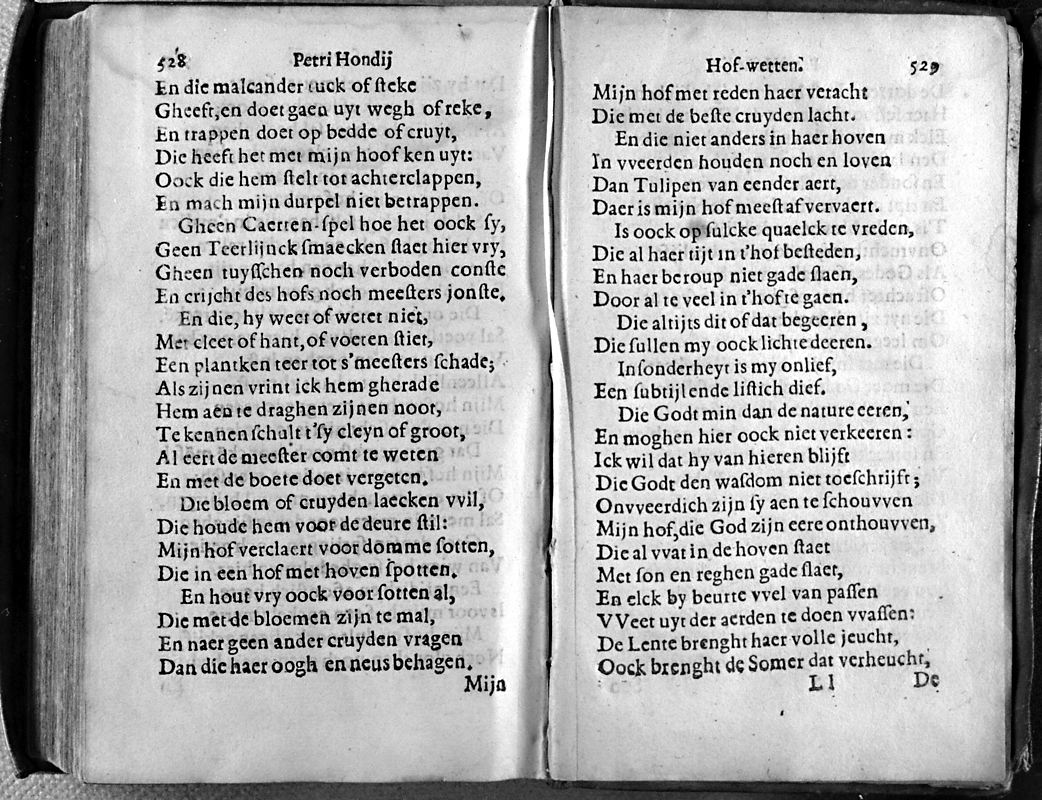 528 Petri Hondij
En die malcander tuck of steke
Gheeft, en doet gaen uyt wegh of reke,
En trappen doet op bedde of cruyt,
Die heeft het met mijn hoof ken uyt:
Oock die hem stelt tot achterclappen,
En mach mijn durpel niet betrappen.
Gheen Caerten-spel hoe het oock sy,
Geen Teerlijnck smaecken staet hier vry,
Gheen tuysschen noch verboden conste
En crijcht des hofs noch meesters jonste.
En die, hy weet of wetet niet,
Met cleet of hant, of voeten stiet,
Een plantken teer tot s'meesters schade;
Als zijnen vrint ick hem gherade
Hem aen te draghen zijnen noot,
Te kennen schult t'sy cleyn of groot,
Al eert de meester comt te weten
En met de boete doet vergeten.
Die bloem of cruyden laecken vvil,
Die houde hem voor de deure stil:
Mijn hof verclaert voor domme sotten,
Die in een hof met hoven spotten.
En hout vry oock voor sotten al,
Die met de bloemen zijn te mal,
En naer geen ander cruyden vragen
Dan die haer oogh en neus behagen.
Mijn
Hof-wetten. 529
Mijn hof met reden haer veracht
Die met de beste cruyden lacht.
En die niet anders in haer hoven
In vveerden houden noch en loven
Dan Tulipen van eender aert,
Daer is mijn hof meest af vervaert.
Is oock op sulcke quaelck te vreden,
Die al haer tijt in t'hof besteden,
En haer beroup niet gade slaen,
Door al te veel in t'hof te gaen.
Die altijts dit of dat begeeren,
Die sullen my oock lichte deeren.
Insonderheyt is my onlief,
Een subtijl ende listich dief.
Die Godt min dan de nature eeren,
En moghen hier oock niet verkeeren:
Ick wil dat hy van hieren blijft
Die Godt den wasdom niet toeschrijft;
Onvveerdich zijn sy aen te schouvven
Mijn hof, die God zijn eere onthouvven,
Die al vvat in de hoven staet
Met son en reghen gade slaet,
En elck by beurte vvel van passen
VVeet uyt der aerden te doen vvassen:
De Lente brenght haer volle jeucht,
Oock brenght de Somer dat verheucht,
Ll De